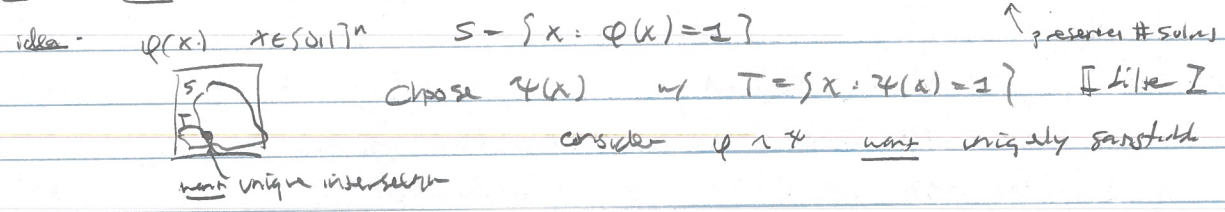 idea - φ(x) x∈{0,1}ⁿ S = {x : φ(x)=1} ↑ preserves # solns
S Choose ψ(x) w/ T = {x : ψ(x)=1}
T consider φ ∧ ψ want uniquely satisfiable
want unique intersection